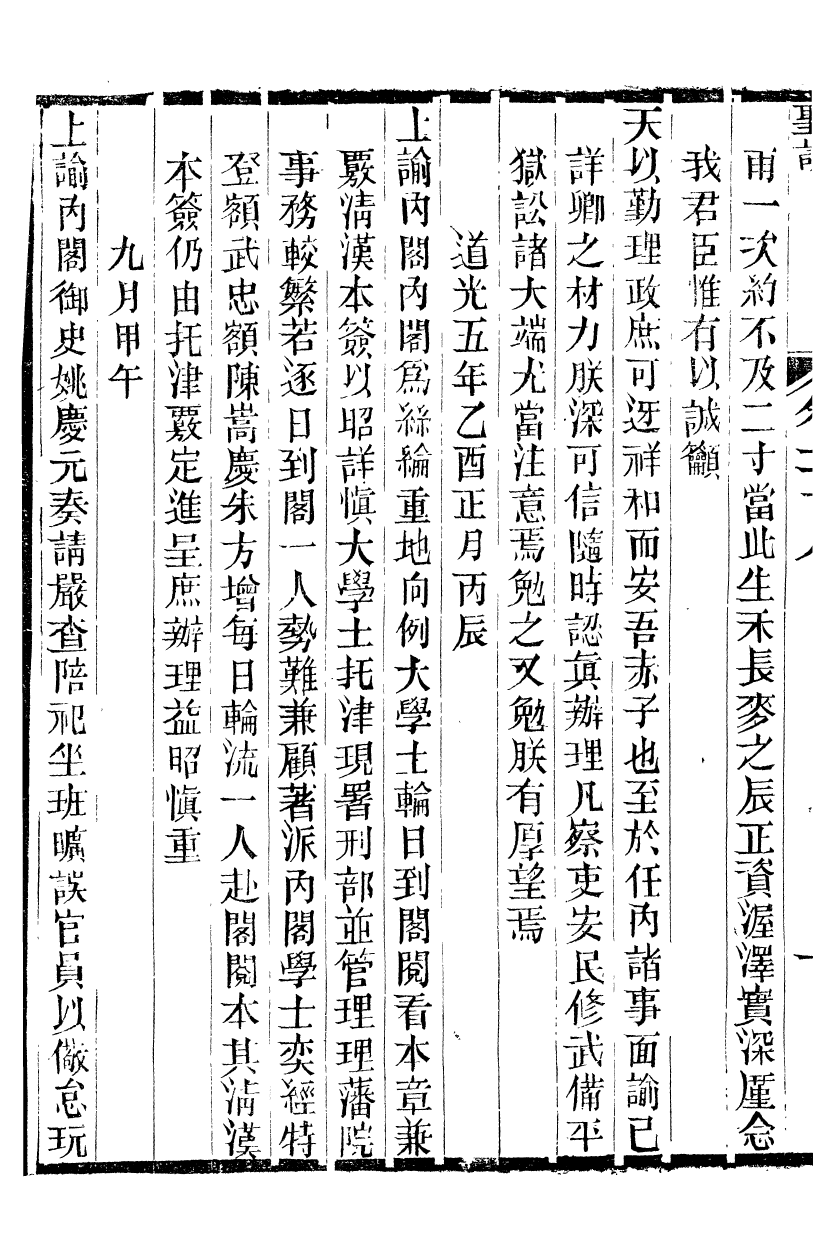 聖訓
雨一次約不及二寸當此生禾長麥之辰正資渥澤實深廑念
我君臣惟有以誠籲
天以勤理政庶可迓祥和而安吾赤子也至於任內諸事面諭已
詳卿之材力朕深可信隨時認眞辦理凡察吏安民修武備平
獄訟諸大端尤當注意焉勉之又勉朕有厚望焉
道光五年乙酉正月丙辰
上諭內閣內閣爲絲綸重地向例大學士輪日到閣閱看本章兼
覈淸漢本簽以昭詳愼大學士托津現署刑部並管理理藩院
事務較繁若逐日到閣一人勢難兼顧著派內閣學士奕經特
登額武忠額陳嵩慶朱方增每日輪流一人赴閣閱本其淸漢
本簽仍由托津覈定進呈庶辦理益昭愼重
九月甲午
上諭內閣御史姚慶元奏請嚴查陪祀坐班曠誤官員以儆怠玩